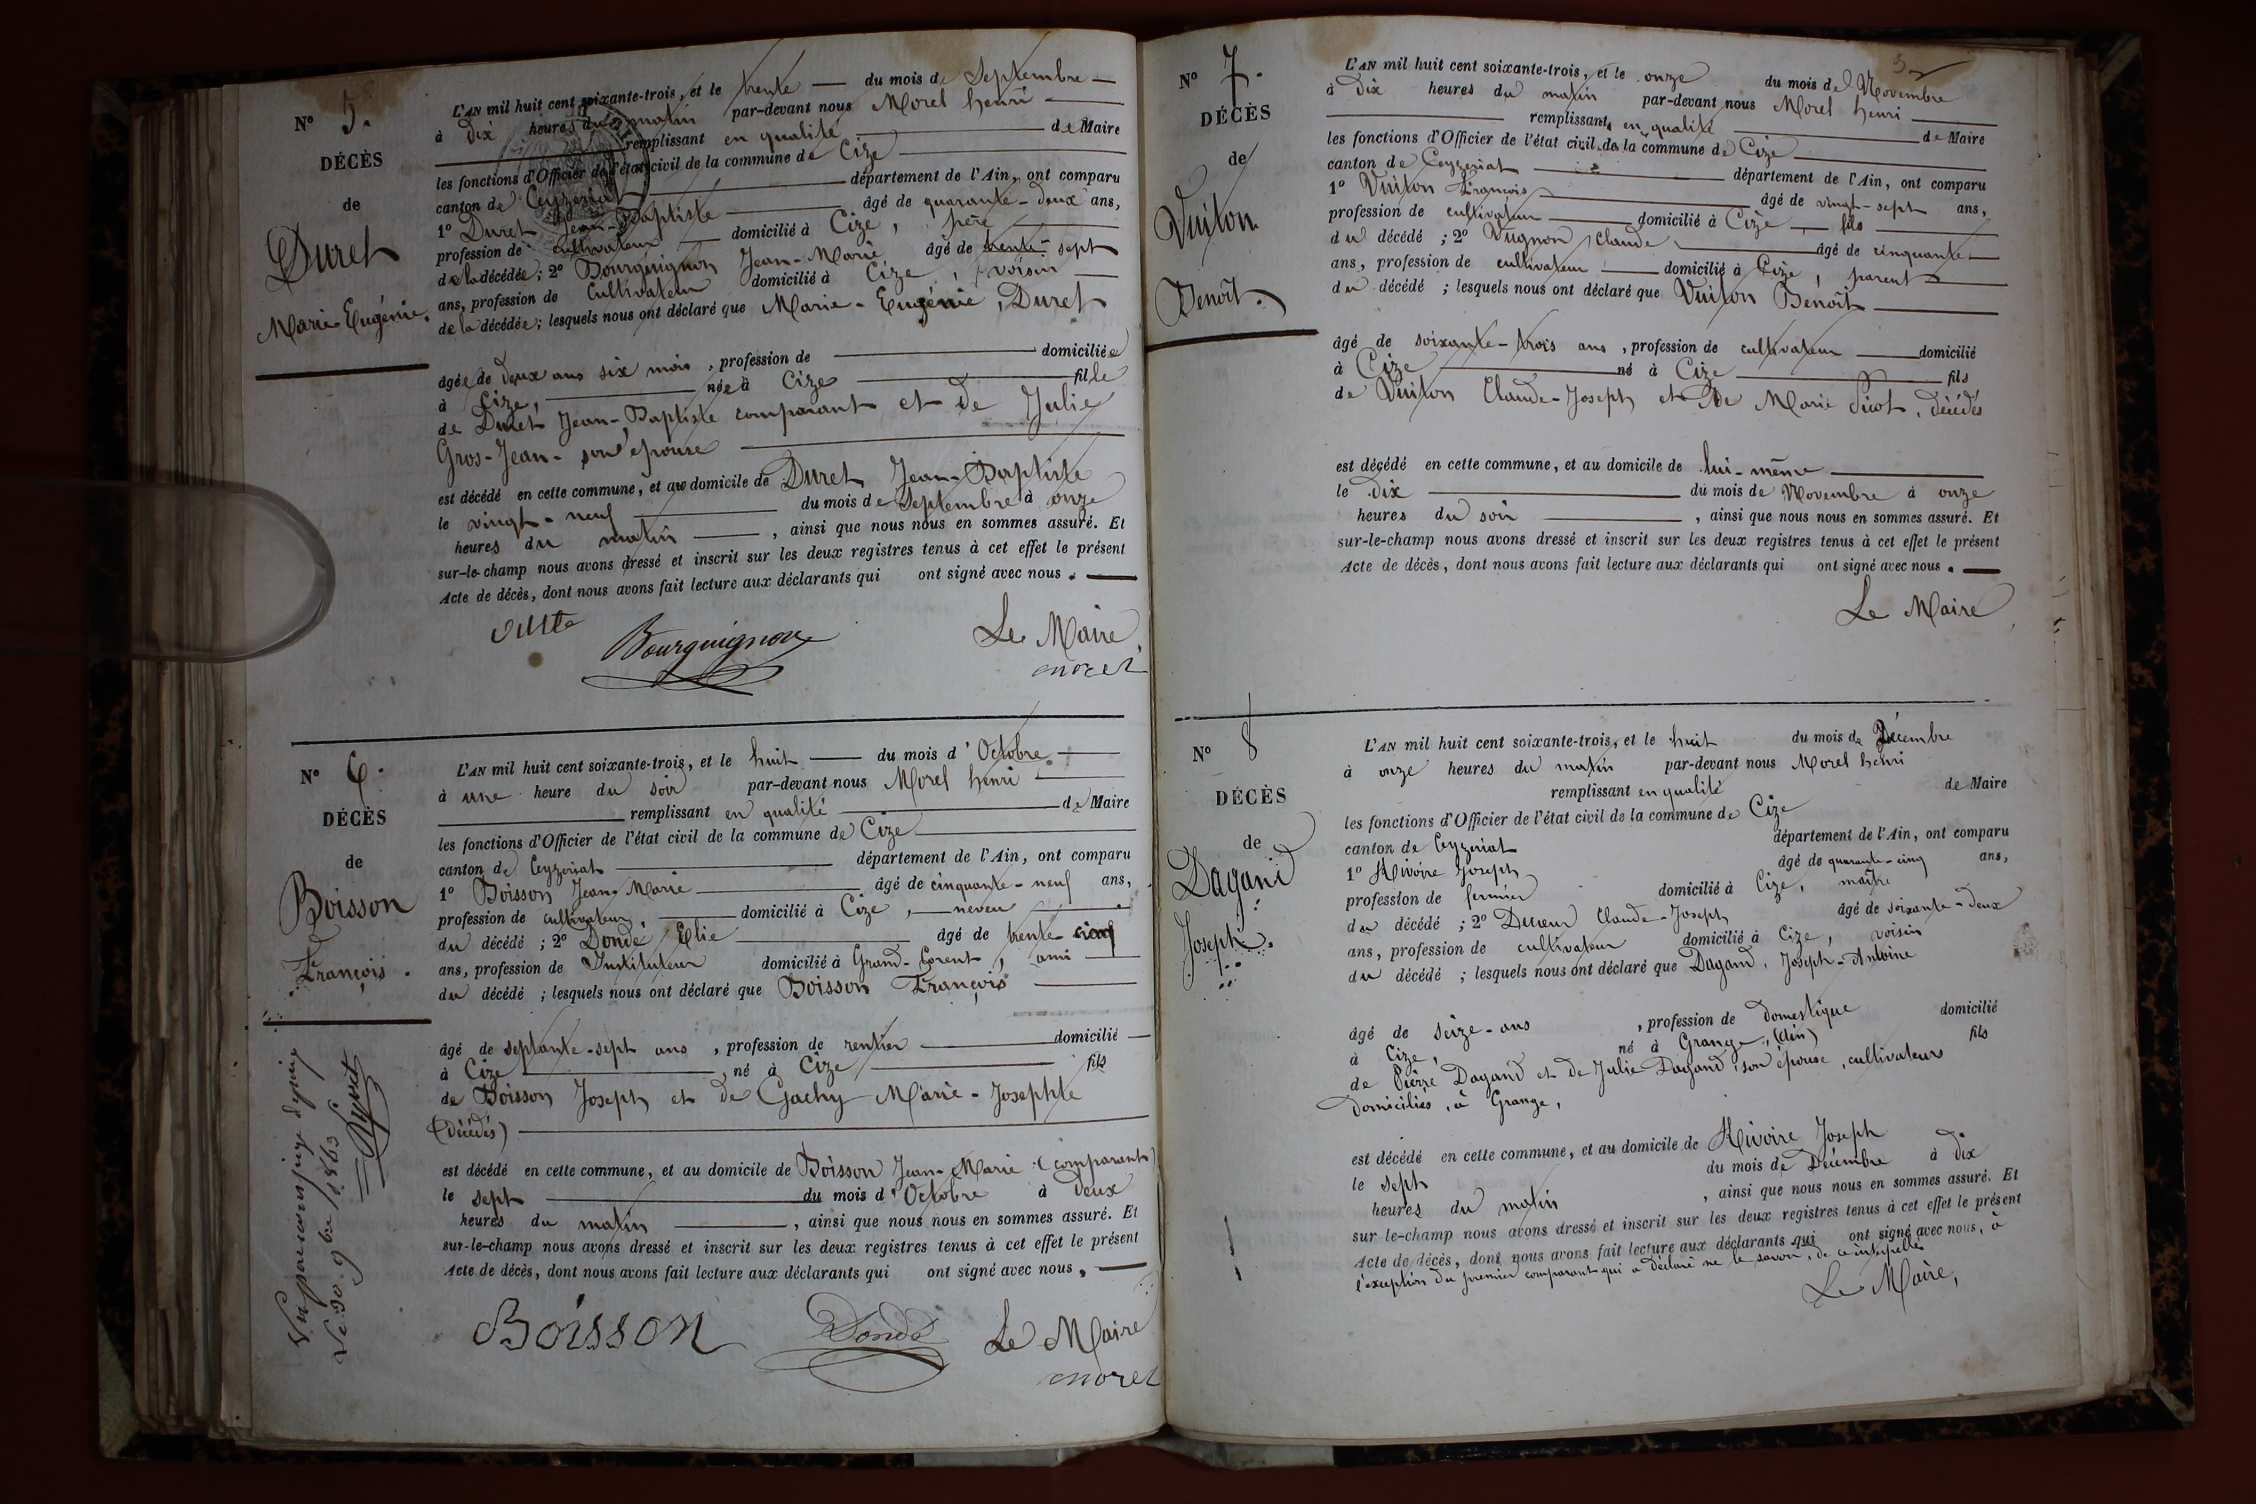 N° 5.
DÉCÈS
de
Duret
Marie Eugénie.
L'AN mil huit cent soixante-trois, et le trente du mois de Septembre
à dix heures du matin par-devant nous Morel henri
remplissant en qualité de Maire
les fonctions d'Officier de l'état civil de la commune de Cize
canton de Ceyzeriat département de l'Ain, ont comparu
1° Duret Jean-Baptiste âgé de quarante-deux ans,
profession de cultivateur domicilié à Cize, père
de la décédée; 2° Bourguignon Jean-Marie âgé de trente-sept
ans, profession de Cultivateur domicilié à Cize, voisin
de la décédée; lesquels nous ont déclaré que Marie-Eugénie, Duret
âgée de deux ans six mois, profession de domiciliée
à Cize, née à Cize fille
de Duret Jean-Baptiste comparant et de Julie
Gros-Jean-son épouse
est décédé en cette commune, et au domicile de Duret Jean-Baptiste
le vingt-neuf du mois de Septembre à onze
heures du matin, ainsi que nous nous en sommes assuré. Et
sur-le-champ nous avons dressé et inscrit sur les deux registres tenus à cet effet le présent
Acte de décès, dont nous avons fait lecture aux déclarants qui ont signé avec nous.
Bourguignon
Le Maire
morel
N° 6.
DÉCÈS
de
Boisson
François.
L'AN mil huit cent soixante-trois, et le huit du mois d'Octobre
à une heure du soir par-devant nous Morel henri
remplissant en qualité de Maire
les fonctions d'Officier de l'état civil de la commune de Cize
canton de Ceyzeriat département de l'Ain, ont comparu
1° Boisson Jean-Marie âgé de cinquante-neuf ans,
profession de cultivateur, domicilié à Cize, neveu
du décédé; 2° Dondé Elie âgé de trente cinq
ans, profession de Instituteur domicilié à Grand-Corent, ami
du décédé; lesquels nous ont déclaré que Boisson François
âgé de septante-sept ans, profession de rentier domicilié
à Cize, né à Cize fils
de Boisson Joseph et de Gachy Marie-Josephte
(décédés)
est décédé en cette commune, et au domicile de Boisson Jean-Marie (comparant)
le sept du mois d'Octobre à deux
heures du matin, ainsi que nous nous en sommes assuré. Et
sur-le-champ nous avons dressé et inscrit sur les deux registres tenus à cet effet le présent
Acte de décès, dont nous avons fait lecture aux déclarants qui ont signé avec nous.
Boisson Dondé Le Maire
morel
Le 30 9bre 1863
N° 7.
DÉCÈS
de
Vuiton
Benoît.
L'AN mil huit cent soixante-trois, et le onze du mois de Novembre
à dix heures du matin par-devant nous Morel henri
remplissant en qualité de Maire
les fonctions d'Officier de l'état civil de la commune de Cize
canton de Ceyzeriat département de l'Ain, ont comparu
1° Vuiton François âgé de vingt-sept ans,
profession de cultivateur domicilié à Cize fils
du décédé; 2° Vugnon Claude âgé de cinquante
ans, profession de cultivateur domicilié à Cize, parent
du décédé; lesquels nous ont déclaré que Vuiton Benoît
âgé de soixante-trois ans, profession de cultivateur domicilié
à Cize né à Cize fils
de Vuiton Claude-Joseph et de Marie Picot, décédés
est décédé en cette commune, et au domicile de lui-même
le dix du mois de Novembre à onze
heures du soir, ainsi que nous nous en sommes assuré. Et
sur-le-champ nous avons dressé et inscrit sur les deux registres tenus à cet effet le présent
Acte de décès, dont nous avons fait lecture aux déclarants qui ont signé avec nous.
Le Maire
N° 8
DÉCÈS
de
Dagand
Joseph.
L'AN mil huit cent soixante-trois, et le huit du mois de Décembre
à onze heures du matin par-devant nous Morel henri
remplissant en qualité de Maire
les fonctions d'Officier de l'état civil de la commune de Cize
canton de Ceyzeriat département de l'Ain, ont comparu
1° Rivoire Joseph âgé de quarante-cinq ans,
profession de fermier domicilié à Cize, maître
du décédé; 2° Decœur Claude-Joseph âgé de soixante-deux
ans, profession de cultivateur domicilié à Cize, voisin
du décédé; lesquels nous ont déclaré que Dagand, Joseph-Antoine
âgé de seize-ans, profession de domestique domicilié
à Cize, né à Grange, (Ain) fils
de Pierre Dagand et de Julie Dagand, son épouse, cultivateurs
domiciliés, à Grange,
est décédé en cette commune, et au domicile de Rivoire Joseph
le sept du mois de Décembre à dix
heures du matin, ainsi que nous nous en sommes assuré. Et
sur-le-champ nous avons dressé et inscrit sur les deux registres tenus à cet effet le présent
Acte de décès, dont nous avons fait lecture aux déclarants qui ont signé avec nous, à
l'exception du premier comparant qui a déclaré ne le savoir, de ce interpellé
Le Maire,